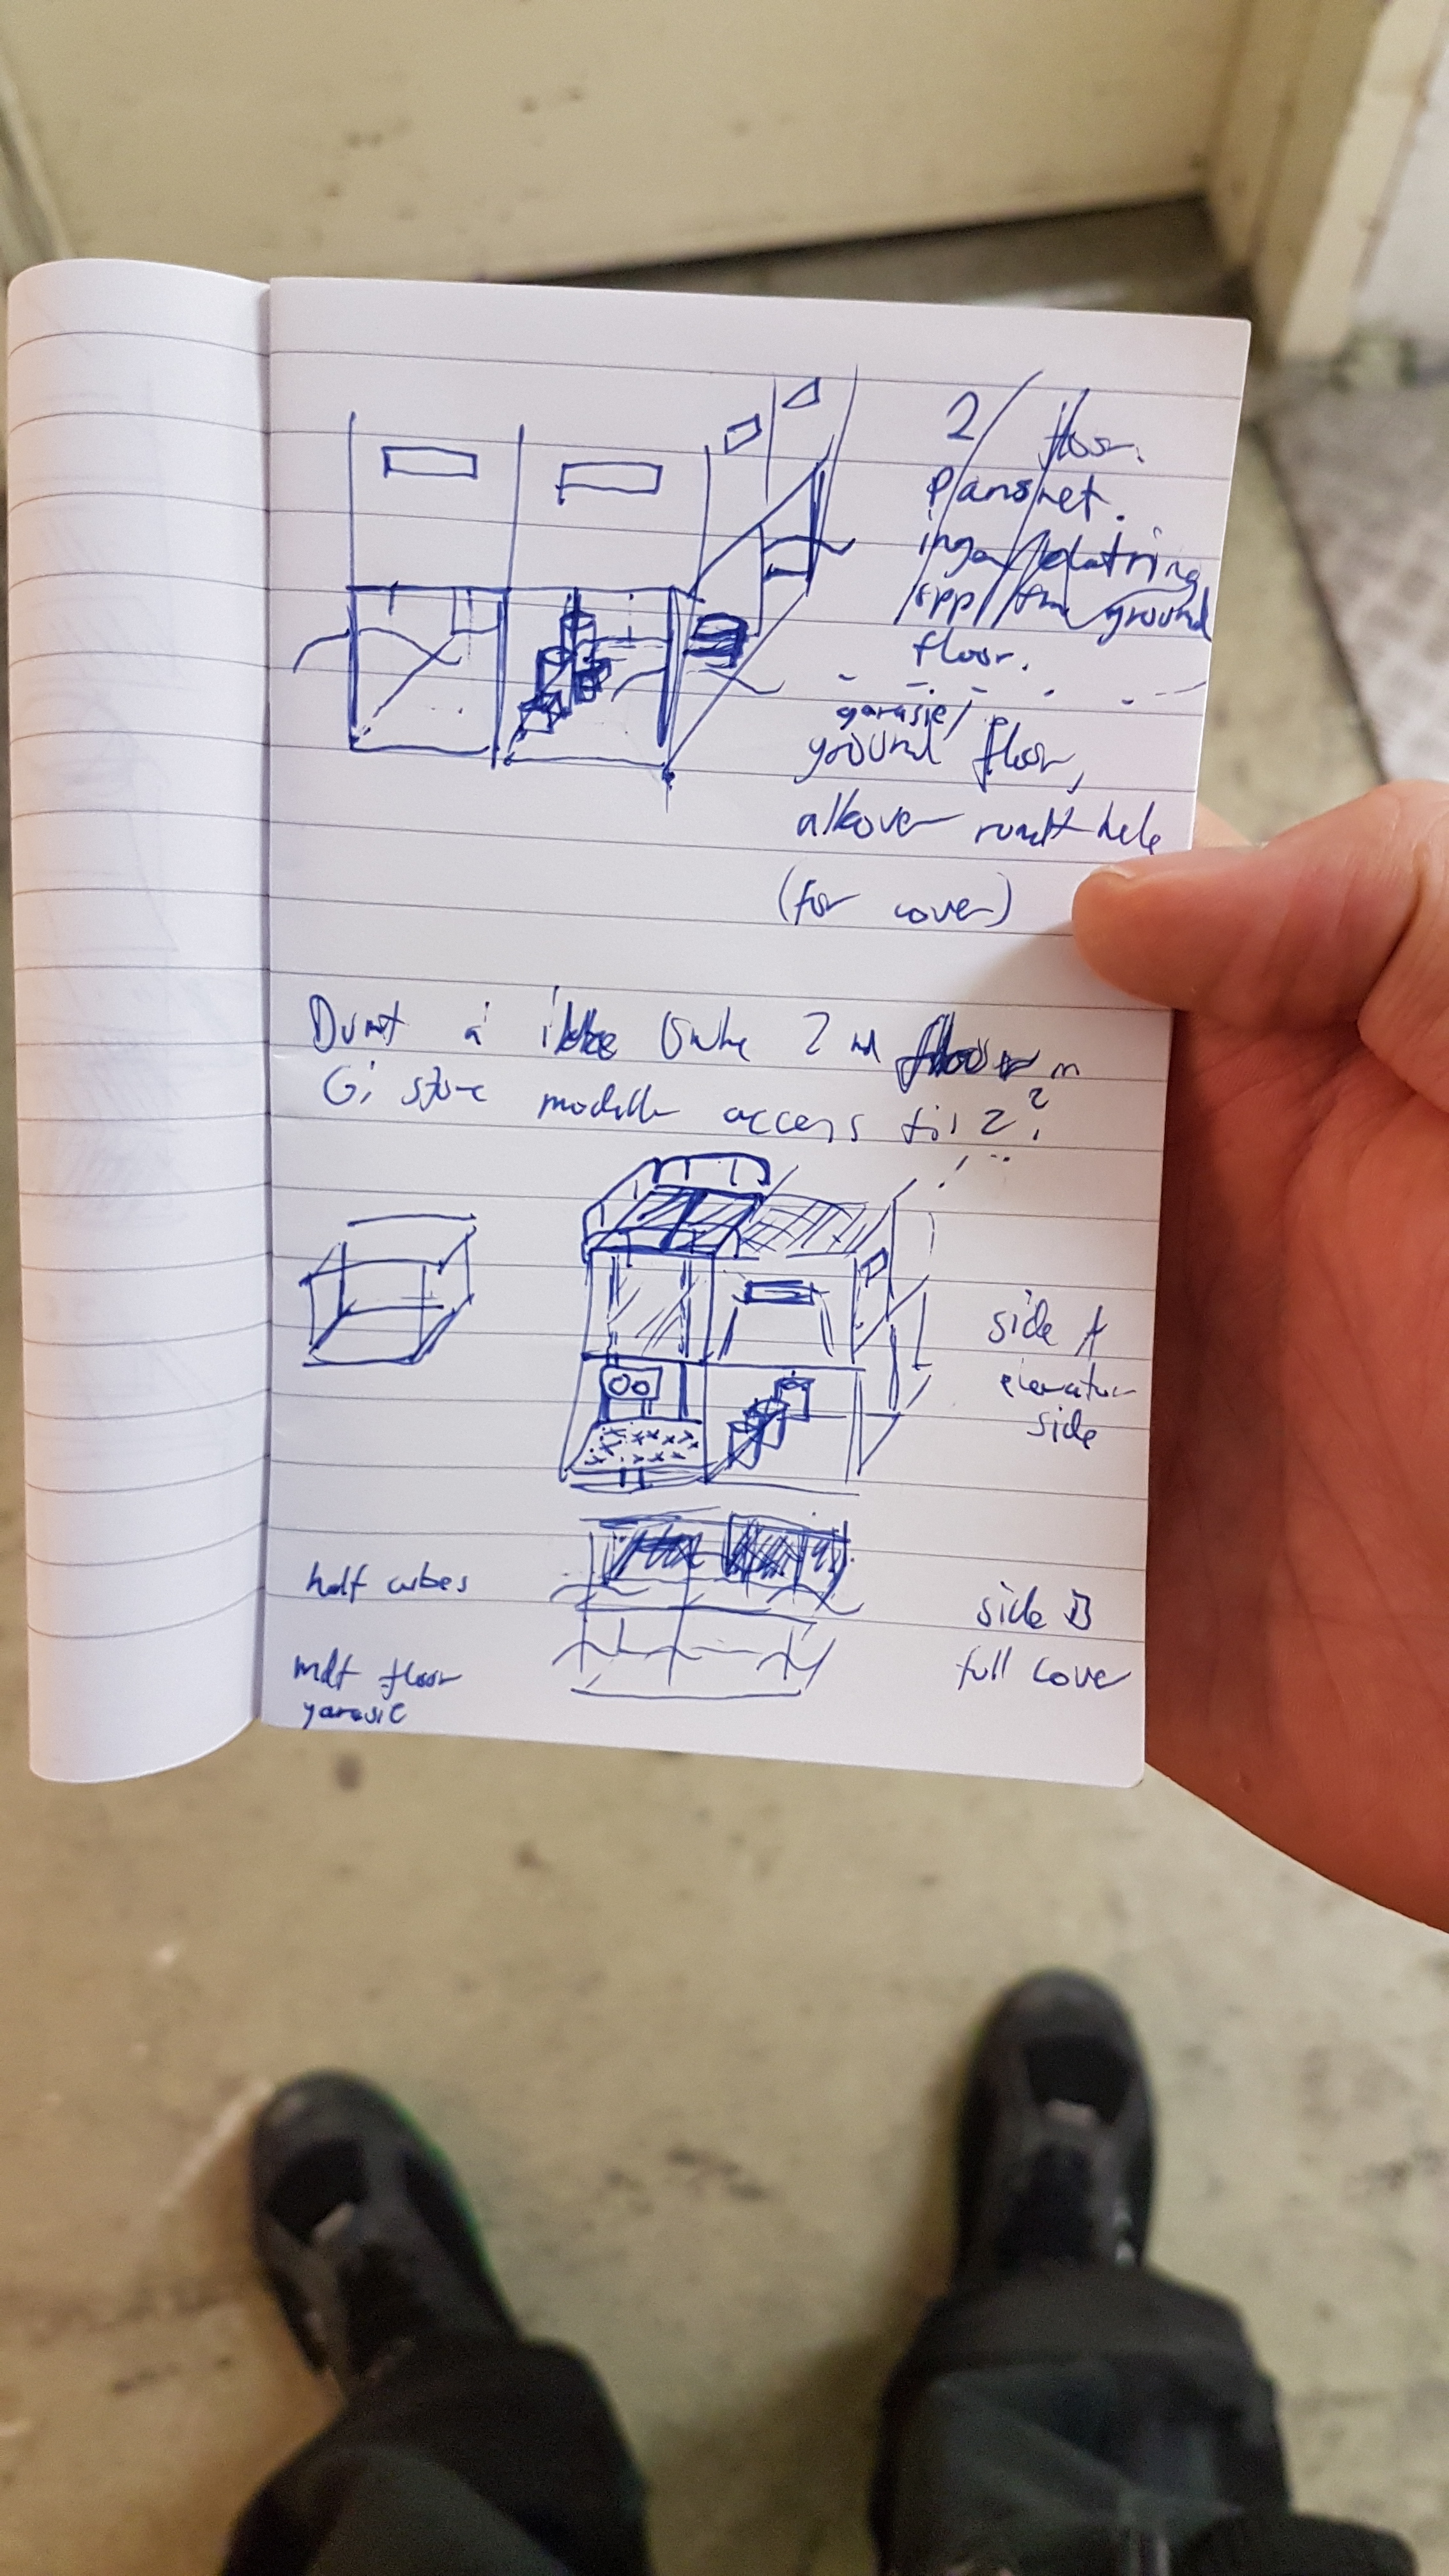 2 floor.
planshet.
inga platring
opp fra ground
floor.
garasje/
ground floor,
alkover rundt hele
(for cover)
Dumt å ikke bruke 2nd floor
Gi store modeller access til 2?
side A
elevator
side
half cubes
side B
full cover
mdf floor
garasje